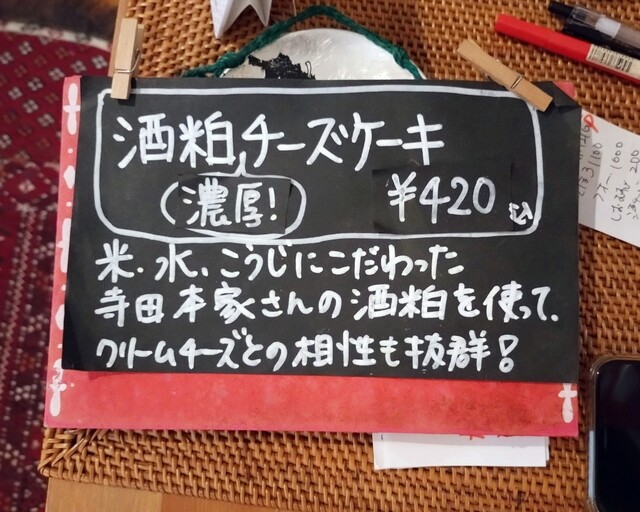 酒粕チーズケーキ
(濃厚!)
¥420
米、水、こうじにこだわった
寺田本家さんの酒粕を使って、
クリームチーズとの相性も抜群!
1000
200